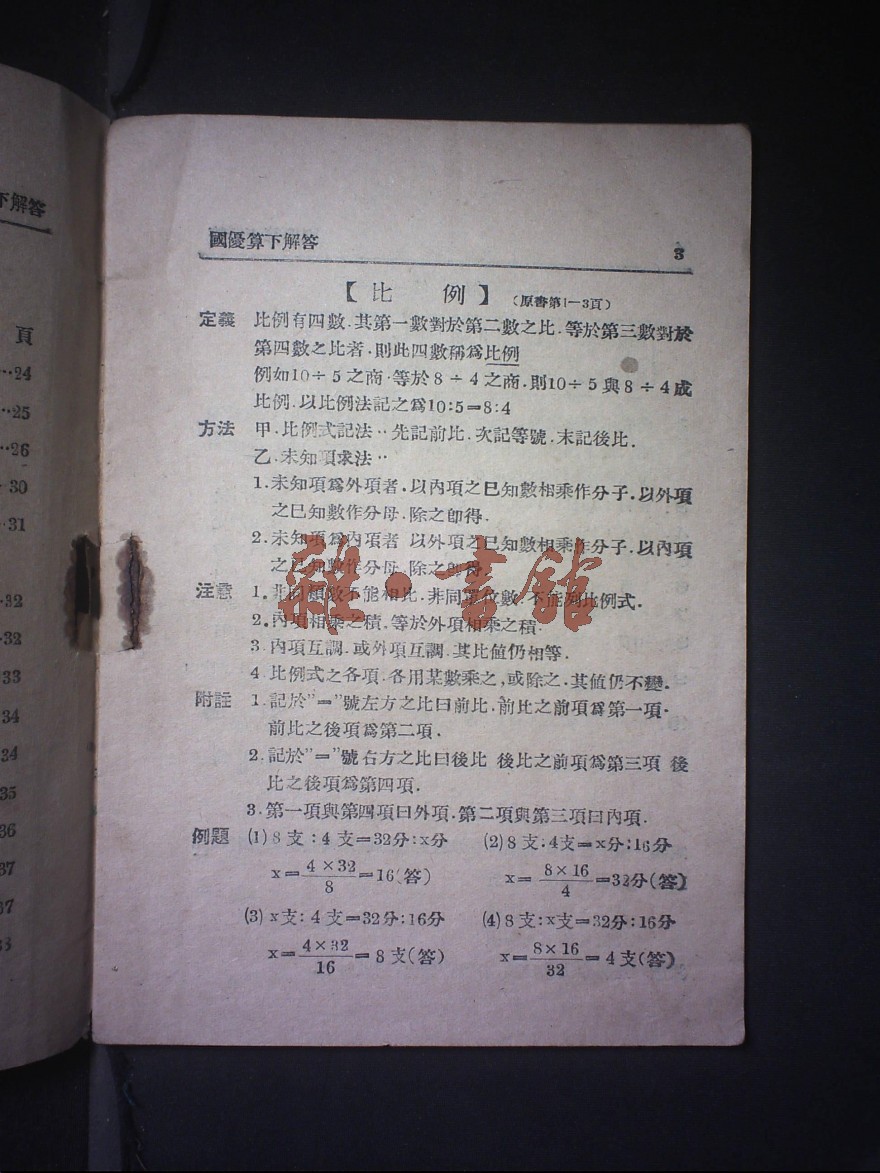 下解答
頁
24
25
26
30
31
32
32
33
34
34
35
36
37
37
國優算下解答 3
【比 例】 (原書第1—3頁)
定義 比例有四數.其第一數對於第二數之比.等於第三數對於
第四數之比者.則此四數稱爲比例
例如10÷5之商.等於8÷4之商.則10÷5與8÷4成
比例.以比例法記之爲10:5=8:4
方法 甲.比例式記法··先記前比.次記等號.末記後比.
乙.未知項求法··
1.未知項爲外項者.以內項之已知數相乘作分子.以外項
之已知數作分母.除之卽得.
2.未知項爲內項者 以外項之已知數相乘作分子.以內項
之已知數作分母.除之卽得.
注意 1.非同類數不能相比.非同單位數.不能列比例式.
2.內項相乘之積.等於外項相乘之積.
3.內項互調.或外項互調.其比値仍相等.
4.比例式之各項.各用某數乘之,或除之.其値仍不變.
附註 1.記於"="號左方之比曰前比.前比之前項爲第一項.
前比之後項爲第二項.
2.記於"="號右方之比曰後比 後比之前項爲第三項 後
比之後項爲第四項.
3.第一項與第四項曰外項.第二項與第三項曰內項.
例題 (1)8支:4支=32分:x分 (2)8支:4支=x分:16分
x=4×32/8=16(答) x=8×16/4=32分(答)
(3)x支:4支=32分:16分 (4)8支:x支=32分:16分
x=4×32/16=8支(答) x=8×16/32=4支(答)
雜·書館